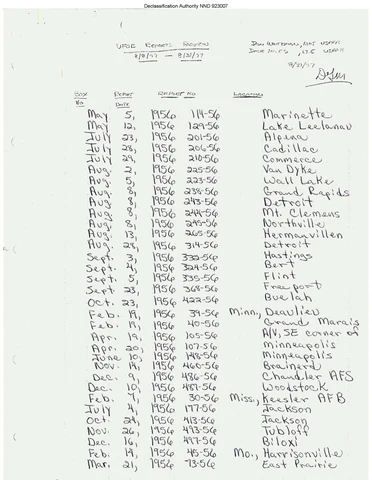 Declassification Authority NND 923007
UFOE REPORTS REVIEW
8/8/77 - 8/21/77
8/21/77
BOX No. REPORT DATE REPORT NO LOCATION
May 5, 1956 114-56 Marinette
May 12, 1956 129-56 Lake Leelanau
July 23, 1956 201-56 Alpena
July 28, 1956 206-56 Cadillac
July 29, 1956 210-56 Commerce
Aug. 2, 1956 225-56 Van Dyke
Aug. 5, 1956 223-56 Wall Lake
Aug. 8, 1956 238-56 Grand Rapids
Aug. 8, 1956 243-56 Detroit
Aug. 8, 1956 244-56 Mt. Clemens
Aug. 8, 1956 245-56 Northville
Aug. 13, 1956 265-56 Hermanvillen
Aug. 28, 1956 314-56 Detroit
Sept. 3, 1956 332-56 Hastings
Sept. 4, 1956 324-56 Bert
Sept. 5, 1956 335-56 Flint
Sept. 23, 1956 368-56 Freeport
Oct. 23, 1956 422-56 Buelah
Feb. 19, 1956 39-56 Minn., Deaulieu
Feb. 19, 1956 40-56 Grand Marais
Apr. 19, 1956 105-56 A/V, SE corner of
Apr. 20, 1956 107-56 Minneapolis
June 10, 1956 148-56 Minneapolis
Nov. 14, 1956 460-56 Brainerd
Dec. 9, 1956 486-56 Chandler AFS
Dec. 10, 1956 487-56 Woodstock
Feb. 7, 1956 30-56 Miss., Keesler AFB
July 4, 1956 177-56 Jackson
Oct. 24, 1956 413-56 Jackson
Nov. 26, 1956 493-56 Tubloff
Dec. 16, 1956 497-56 Biloxi
Feb. 19, 1956 45-56 Mo., Harrisonville
Mar. 21, 1956 73-56 East Prairie